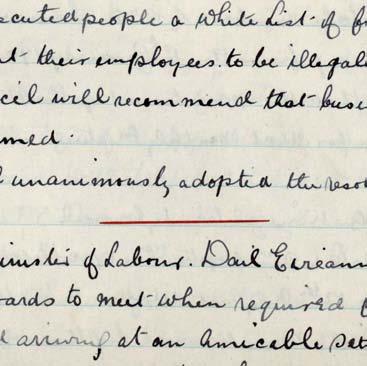 scuted people a White List of f
t their employees to be illegal
cil will recommend that busi
med.
unanimously adopted the reso
inister of Labour. Dail Eireann
oards to meet when required f
d arriving at an amicable set